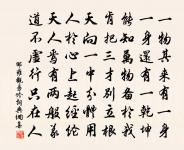 一物其來有一身
一身還有一乾坤
能知萬物備於我
肯把三才別立根
天向一中分體用
人於心上起經綸
天人焉有兩般義
道不虛行只在人
邵雍觀易吟詞典網書